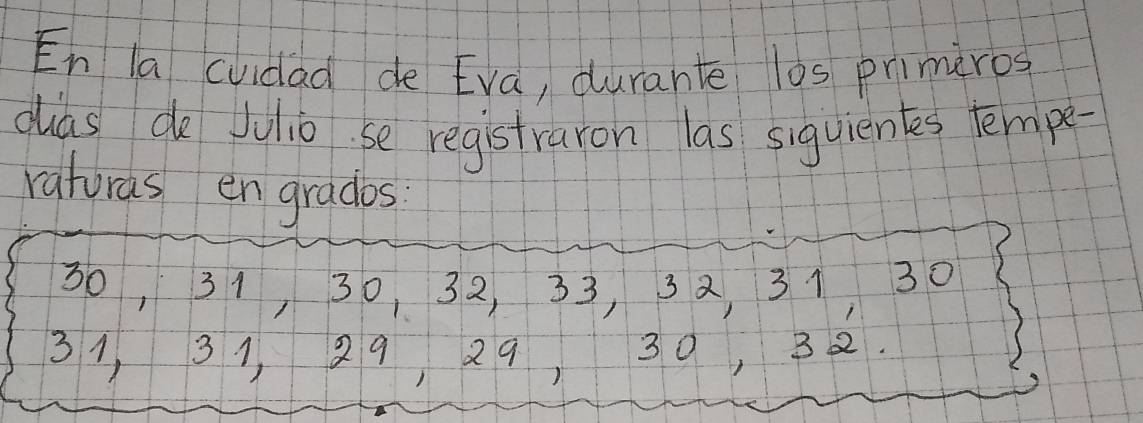 En la cuidad de Eva, durante los primeros
días de Julio se registraron las siguientes tempe-
raturas en grados:
30, 31, 30, 32, 33, 32, 31, 30
31, 31, 29, 29, 30, 32.